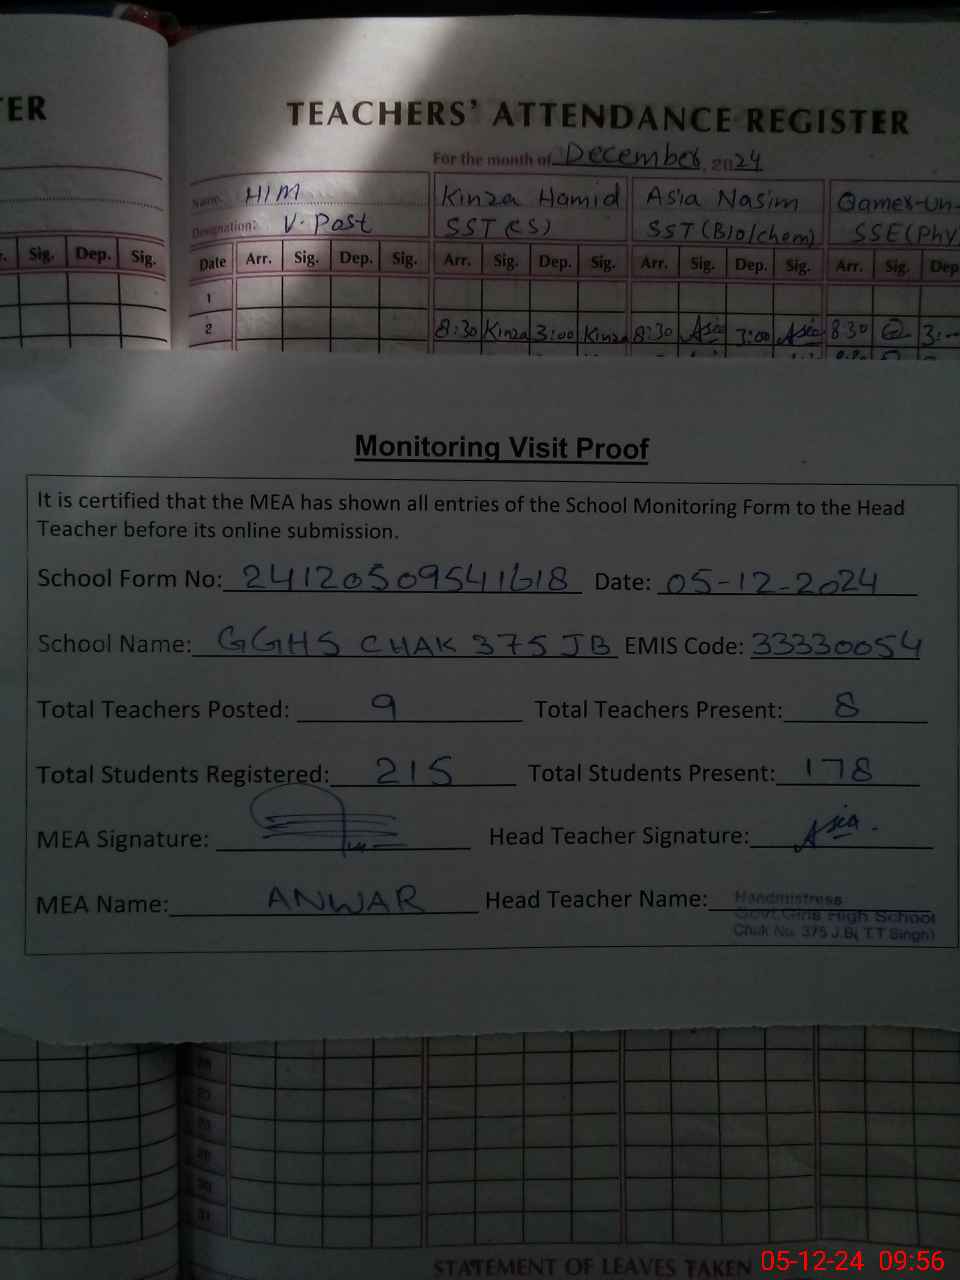 TER
TEACHERS' ATTENDANCE REGISTER
For the month of December, 2024
Name. HIM Kinza Hamid Asia Nasim Qamer-Un-
Designation: V. Post SST (CS) SST (Bio/chem) SSE (Phy)
r. Sig. Dep. Sig. Date Arr. Sig. Dep. Sig. Arr. Sig. Dep. Sig. Arr. Sig. Dep. Sig. Arr. Sig. Dep
1
2 8:30 Kinza 3:00 Kinza 8:30 Asia 3:00 Asia 8:30 3:
Monitoring Visit Proof
It is certified that the MEA has shown all entries of the School Monitoring Form to the Head
Teacher before its online submission.
School Form No: 24120509541618 Date: 05-12-2024
School Name: GGHS CHAK 375 JB EMIS Code: 33330054
Total Teachers Posted: 9 Total Teachers Present: 8
Total Students Registered: 215 Total Students Present: 178
MEA Signature: Head Teacher Signature: Asia.
MEA Name: ANWAR Head Teacher Name: Headmistress
Govt.Girls High School
Chak No. 375 J.B( T.T Singh)
30
31
STATEMENT OF LEAVES TAKEN
05-12-24 09:56